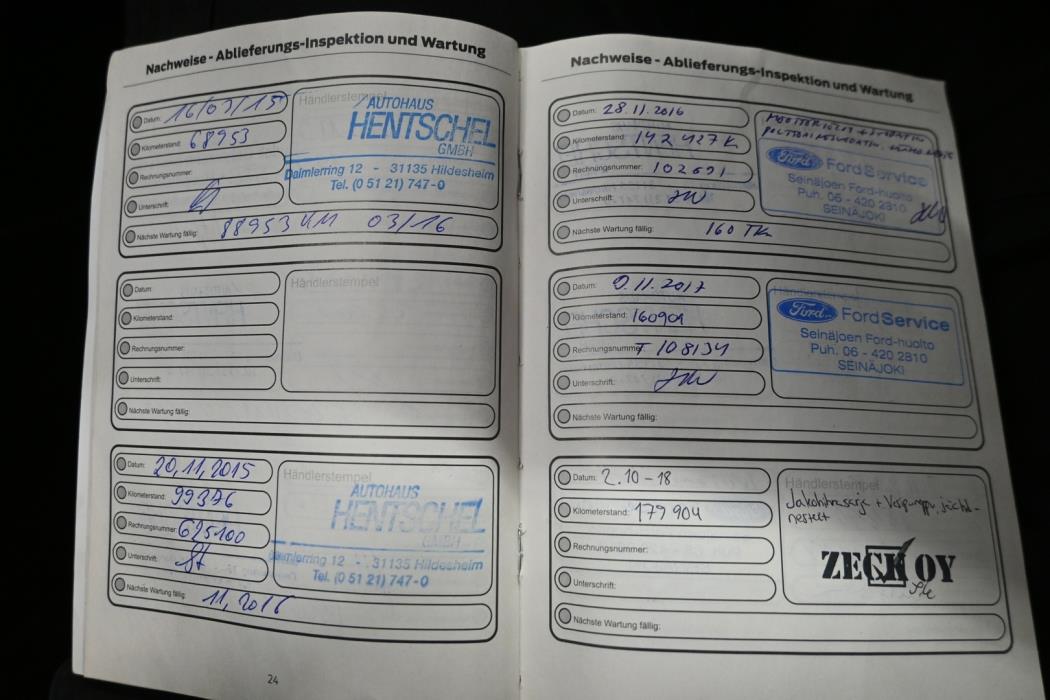 Nachweise - Ablieferungs-Inspektion und Wartung
Datum: 16/03/15
Händlerstempel
AUTOHAUS
HENTSCHEL
GMBH
Daimlerring 12 - 31135 Hildesheim
Tel. (0 51 21) 747-0
Kilometerstand: 68953
Rechnungsnummer:
Unterschrift:
Nächste Wartung fällig: 88953 KM 03/16
Datum:
Händlerstempel
Kilometerstand:
Rechnungsnummer:
Unterschrift:
Nächste Wartung fällig:
Datum: 20,11,2015
Händlerstempel
AUTOHAUS
HENTSCHEL
GMBH
Daimlerring 12 - 31135 Hildesheim
Tel. (0 51 21) 747-0
Kilometerstand: 99376
Rechnungsnummer: 625100
Unterschrift:
Nächste Wartung fällig: 11, 2016
24
Nachweise - Ablieferungs-Inspektion und Wartung
Datum: 28.11.2016
Kilometerstand: 142427k
Rechnungsnummer: 102691
Unterschrift:
Ford FordService
Seinäjoen Ford-huolto
Puh. 06 - 420 2810
SEINÄJOKI
Nächste Wartung fällig: 160 TKm
Datum: 9.11.2017
Händlerstempel
Kilometerstand: 160909
Rechnungsnummer: T 108134
Unterschrift:
Ford FordService
Seinäjoen Ford-huolto
Puh. 06 - 420 2810
SEINÄJOKI
Nächste Wartung fällig:
Datum: 2.10-18
Händlerstempel
Kilometerstand: 179904
Rechnungsnummer:
Unterschrift:
ZECK OY
Nächste Wartung fällig: